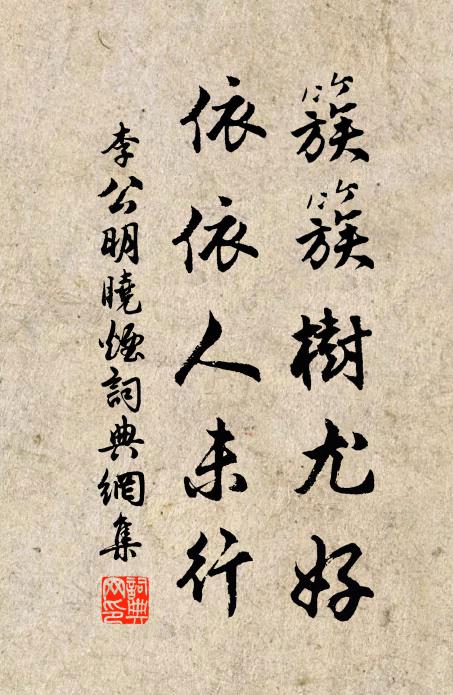 簇簇樹尤好
依依人未行
李公明曉煙詞典網集
詞典網印